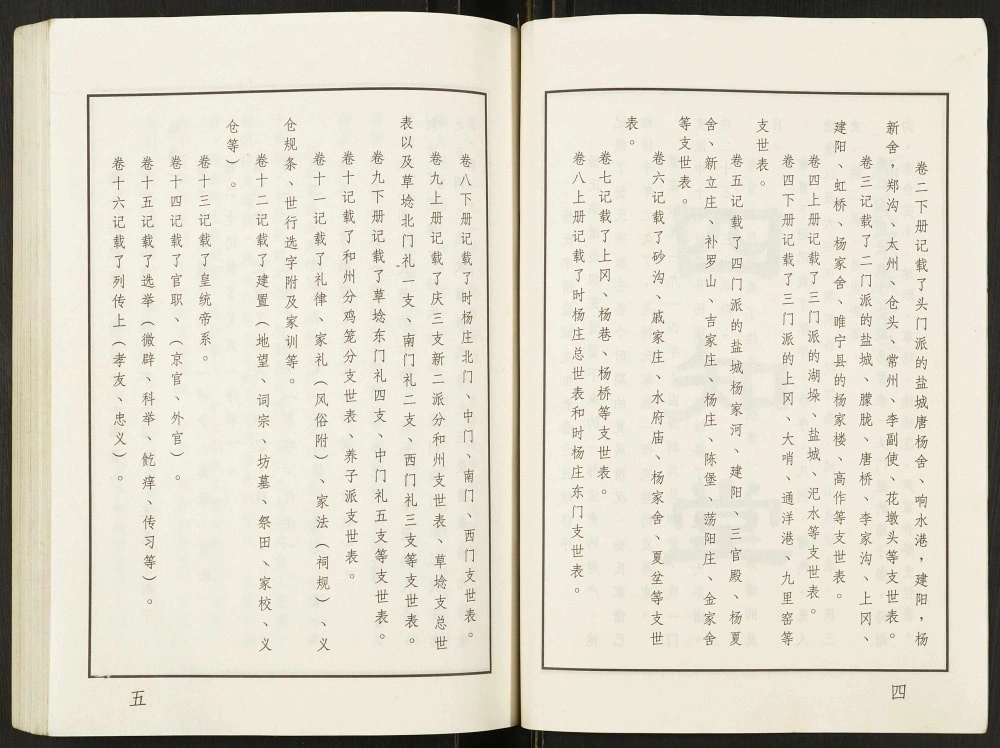 卷二下册记载了头门派的盐城唐杨舍、响水港，建阳，杨
新舍，郑沟、太州、仓头、常州、李副使、花墩头等支世表。
卷三记载了二门派的盐城、朦胧、唐桥、李家沟、上冈、
建阳、虹桥、杨家舍、唯宁县的杨家楼、高作等支世表。
卷四上册记载了三门派的湖垛、盐城、汜水等支世表。
卷四下册记载了三门派的上冈、大哨、通洋港、九里窑等
支世表。
卷五记载了四门派的盐城杨家河、建阳、三官殿、杨夏
舍、新立庄、补罗山、吉家庄、杨庄、陈堡、荡阳庄、金家舍
等支世表。
卷六记载了砂沟、戚家庄、水府庙、杨家舍、夏坌等支世
表。
卷七记载了上冈、杨巷、杨桥等支世表。
卷八上册记载了时杨庄总世表和时杨庄东门支世表。
四
卷八下册记载了时杨庄北门、中门、南门、西门支世表。
卷九上册记载了庆三支新二派分和州支世表、草埝支总世
表以及草埝北门礼一支、南门礼二支、西门礼三支等支世表。
卷九下册记载了草埝东门礼四支、中门礼五支等支世表。
卷十记载了和州分鸡笼分支世表、养子派支世表。
卷十一记载了礼律、家礼（风俗附）、家法（祠规）、义
仓规条、世行选字附及家训等。
卷十二记载了建置（地望、词宗、坊墓、祭田、家校、义
仓等）。
卷十三记载了皇统帝系。
卷十四记载了官职、（京官、外官）。
卷十五记载了选举（微辟、科举、饩痒、传习等）。
卷十六记载了列传上（孝友、忠义）。
五